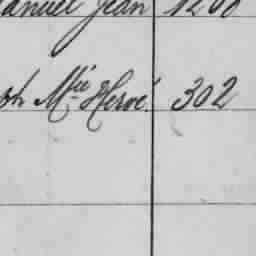 anuel Jean 1208
ph Mie Hervé 302